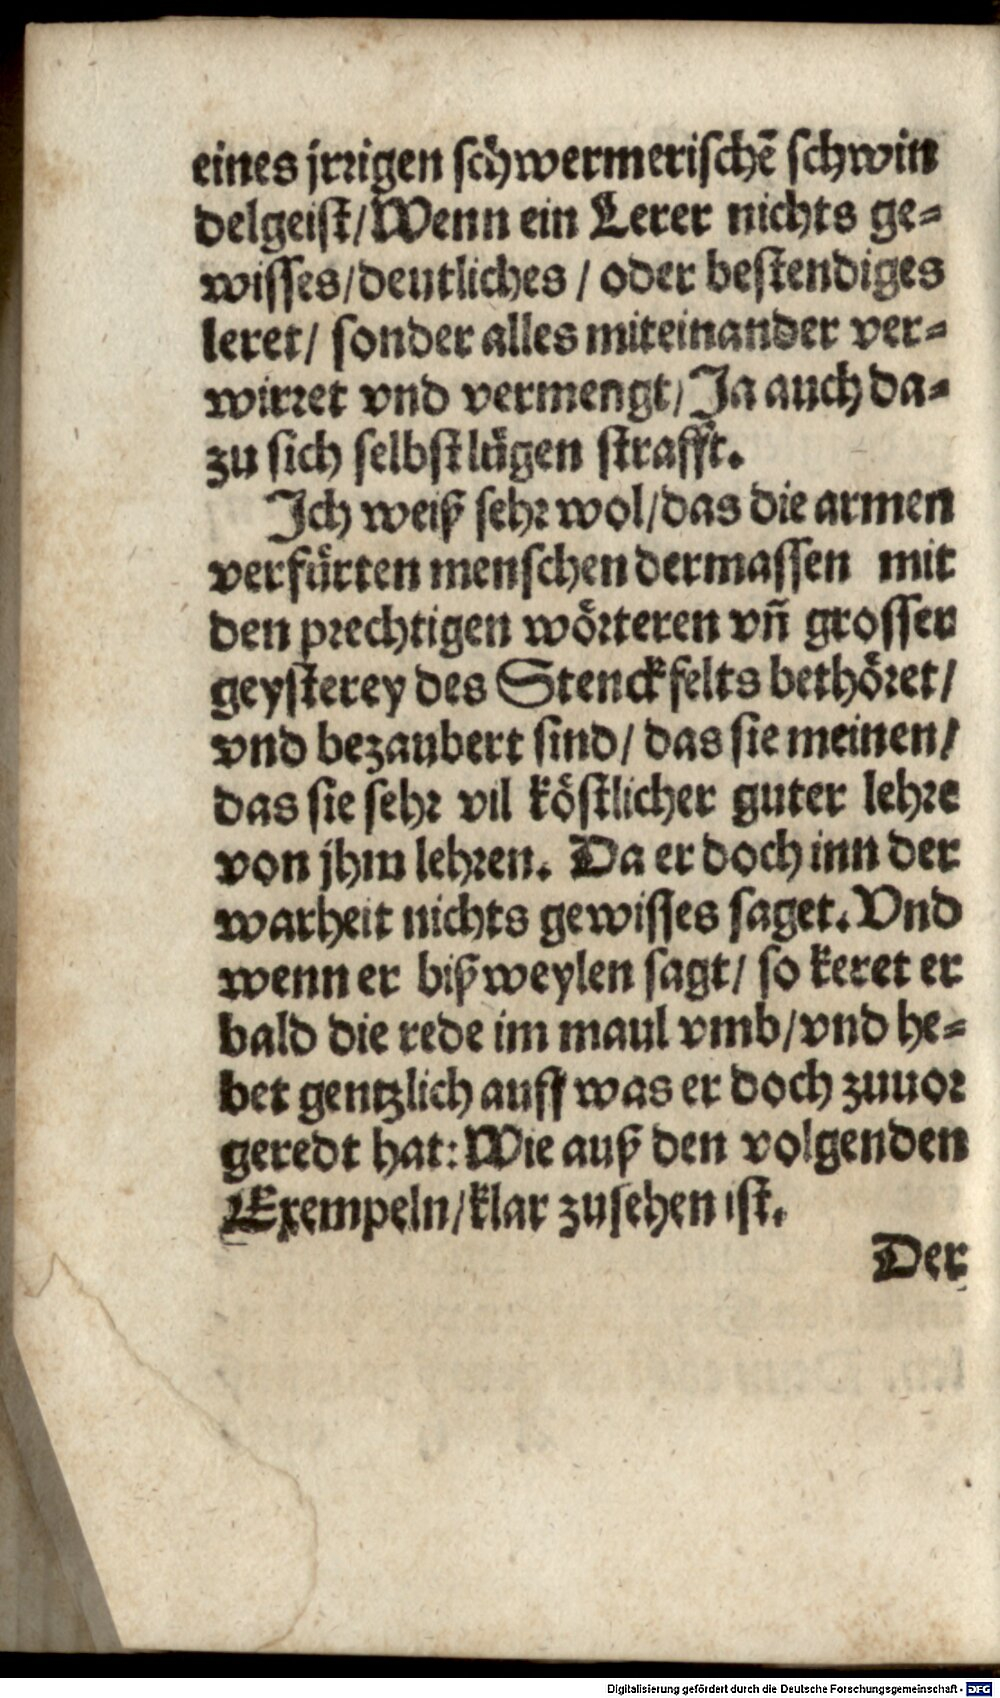 eines jrrigen schwermerischē schwin
delgeist/ Wenn ein Lerer nichts ge-
wisses/deutliches / oder bestendiges
leret/ sonder alles miteinander ver-
wirret vnd vermengt/ Ja auch da-
zu sich selbst lügen strafft.
Ich weiß sehr wol/das die armen
verfürten menschen dermassen mit
den prechtigen wörteren vñ grosser
geysterey des Stenckfelts bethöret/
vnd bezaubert sind/ das sie meinen/
das sie sehr vil köstlicher guter lehre
von jhm lehren. Da er doch inn der
warheit nichts gewisses saget. Vnd
wenn er bißweylen sagt/ so keret er
bald die rede im maul vmb/vnd he-
bet gentzlich auff was er doch zuuor
geredt hat: Wie auß den volgenden
Exempeln/klar zusehen ist.
Der
Digitalisierung gefördert durch die Deutsche Forschungsgemeinschaft - DFG